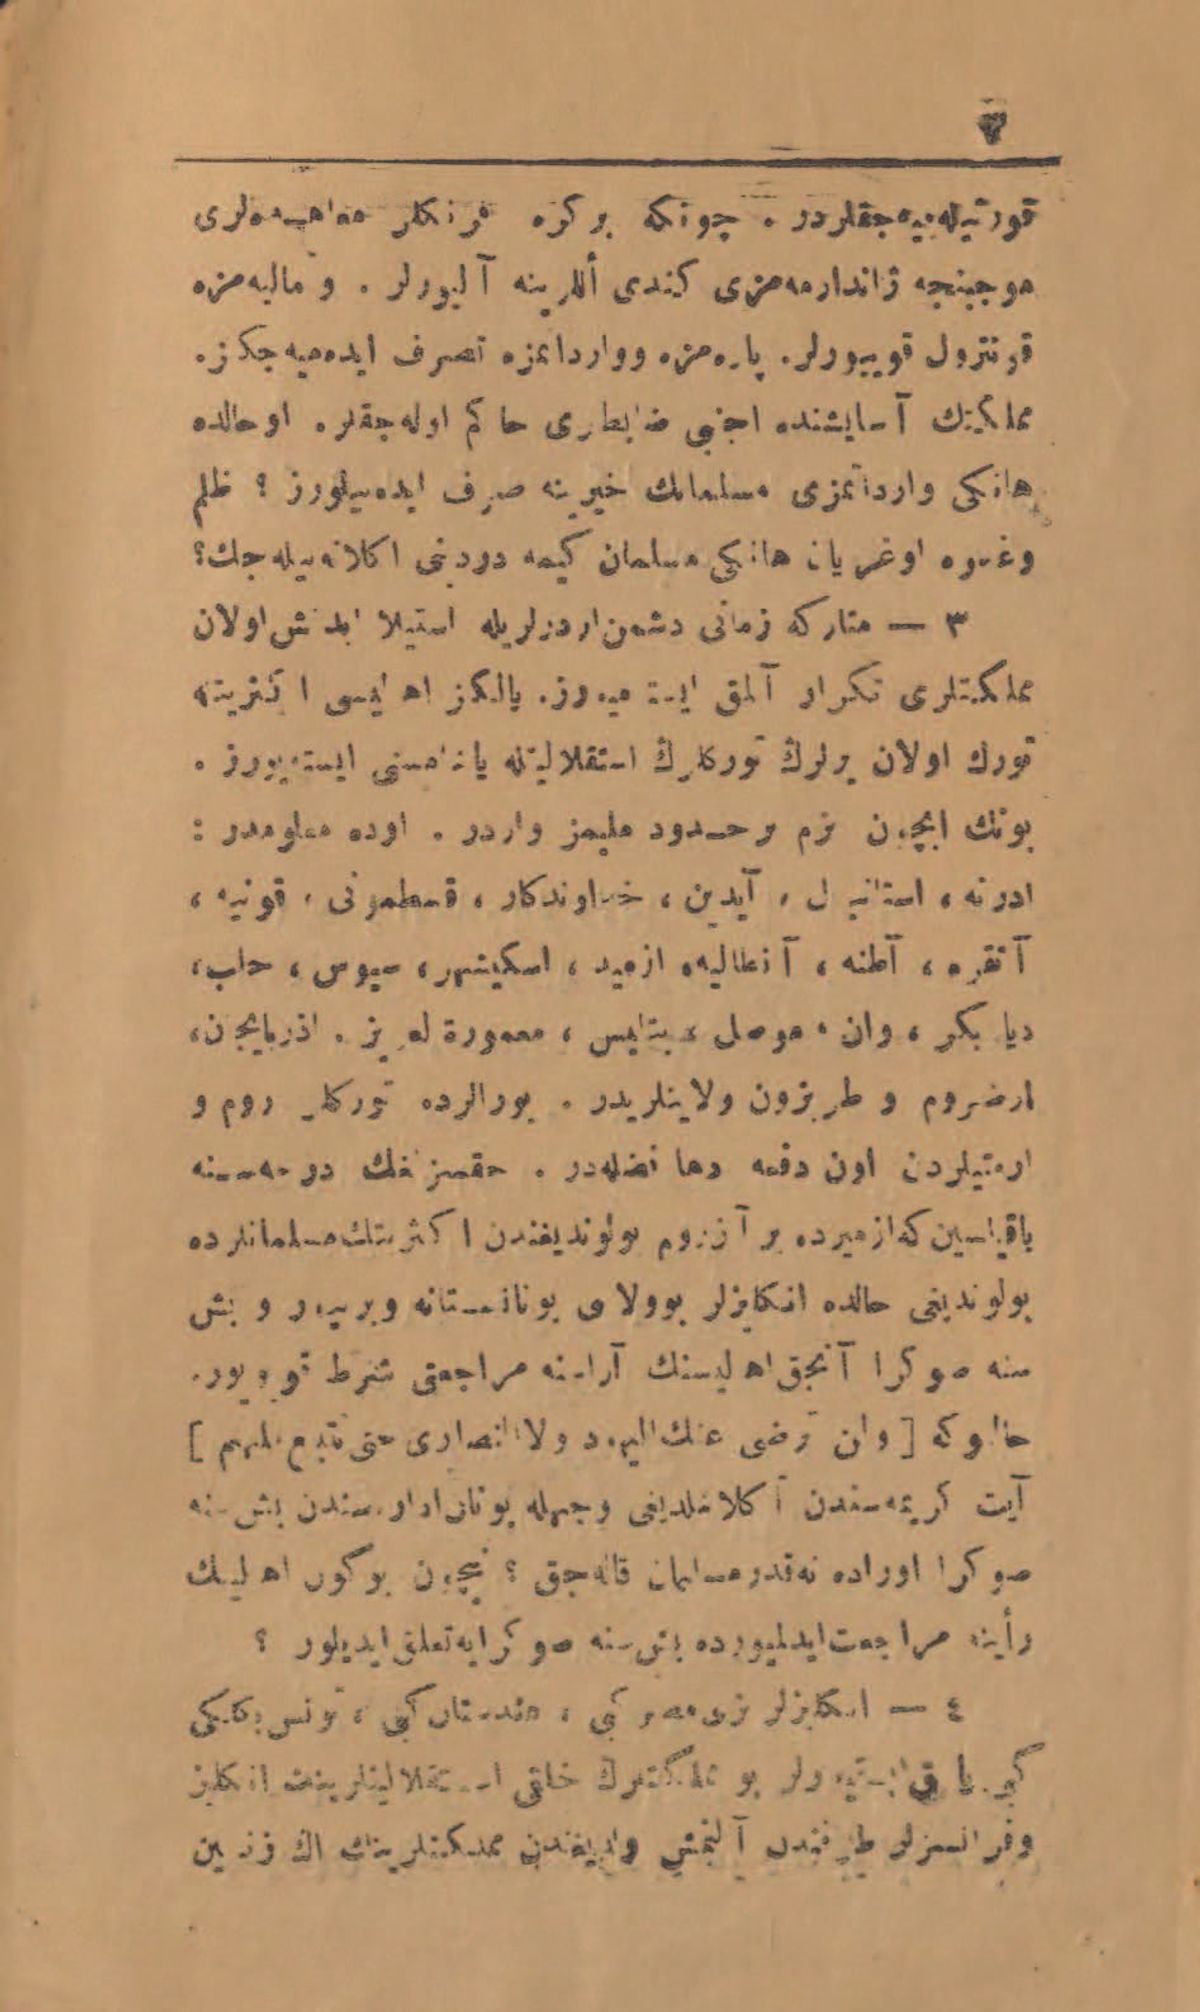 ٧
قورتيله‌ميه‌جقلردر . چونكه بر كره فرنكلر معاهده‌لرى
موجبنجه ژاندارمه‌مزى كندى أللرينه آليورلر . و ماليه‌مزه
قونترول قويیورلر. پاره‌مزه وواردا‌تمزه تصرف ايده‌ميه جكز.
مملكتك آسايشنده اجنبى ضابطلرى حاكم اوله‌جقلر. او حالده
هانكى وارداتمزى مسلمانك خيرينه صرف ايده‌بيلورز ؟ ظلم
وغدره اوغريان هانكى مسلمان كيمه دردينى اكلاته‌بيله‌جك؟
٣ — متاركه زمانى دشمن اردولريله استيلا ايدلمش اولان
مملكتلرى تكرار آلمق ايسته‌ميورز. يالكز اهاليسى اكثريتله
تورك اولان يرلرك توركلرك استقلاليتله ياشامسنى ايسته‌يورز .
بونك ايچون بزم بر حدود مليمز واردر . اوده معلومدر :
ادرنه ، استانبول ، آيدين ، خداوندكار ، قسطمونى ، قونيه ،
آنقره ، آطنه ، آنطاليه، ازميد ، اسكيشهر، سيوس ، حلب،
ديا بكر ، وان ، موصل ، بتليس ، معمورة لعزيز . اذربايجان،
ارضروم و طربزون ولايتلريدر . بورالرده توركلر روم و
ارمنيلردن اون دفعه دها فضله‌در . حقسزلغك درجه‌سنه
باقيكسين كه ازميرده بر آز روم بولونديغندن اكثريتك مسلمانلرده
بولونديغى حالده انكليزلر بوولايى يونانستانه ويرييور و بش
سنه صوكرا آنجق اهاليسنك آراسنه مراجعتى شرط قويويور.
حالوكه [ وان ترضى عنك اليهود ولا النصارى حتى تتبع ملتهم ]
آيت كريمه‌سندن آكلاشلديغى وجهله يونان اداره‌سندن بش سنه
صوكرا اوراده نه‌قدر مسلمان قاله‌جق ؟ نيچون بوكون اهالينك
رأينه مراجعت ايدلميورده بش سنه صوكرايه تعليق ايديلور ؟
٤ — انكليزلر بزى مصر كبى ، هندستان كبى ، تونس
كبى يا ق ايسته‌يورلر بو مملكتلرك خلقى استقلاليتلرينك انكليز
وفرانسزلر طرفندن آلنمش ولديغندن مملكتلرينك اك زنكين